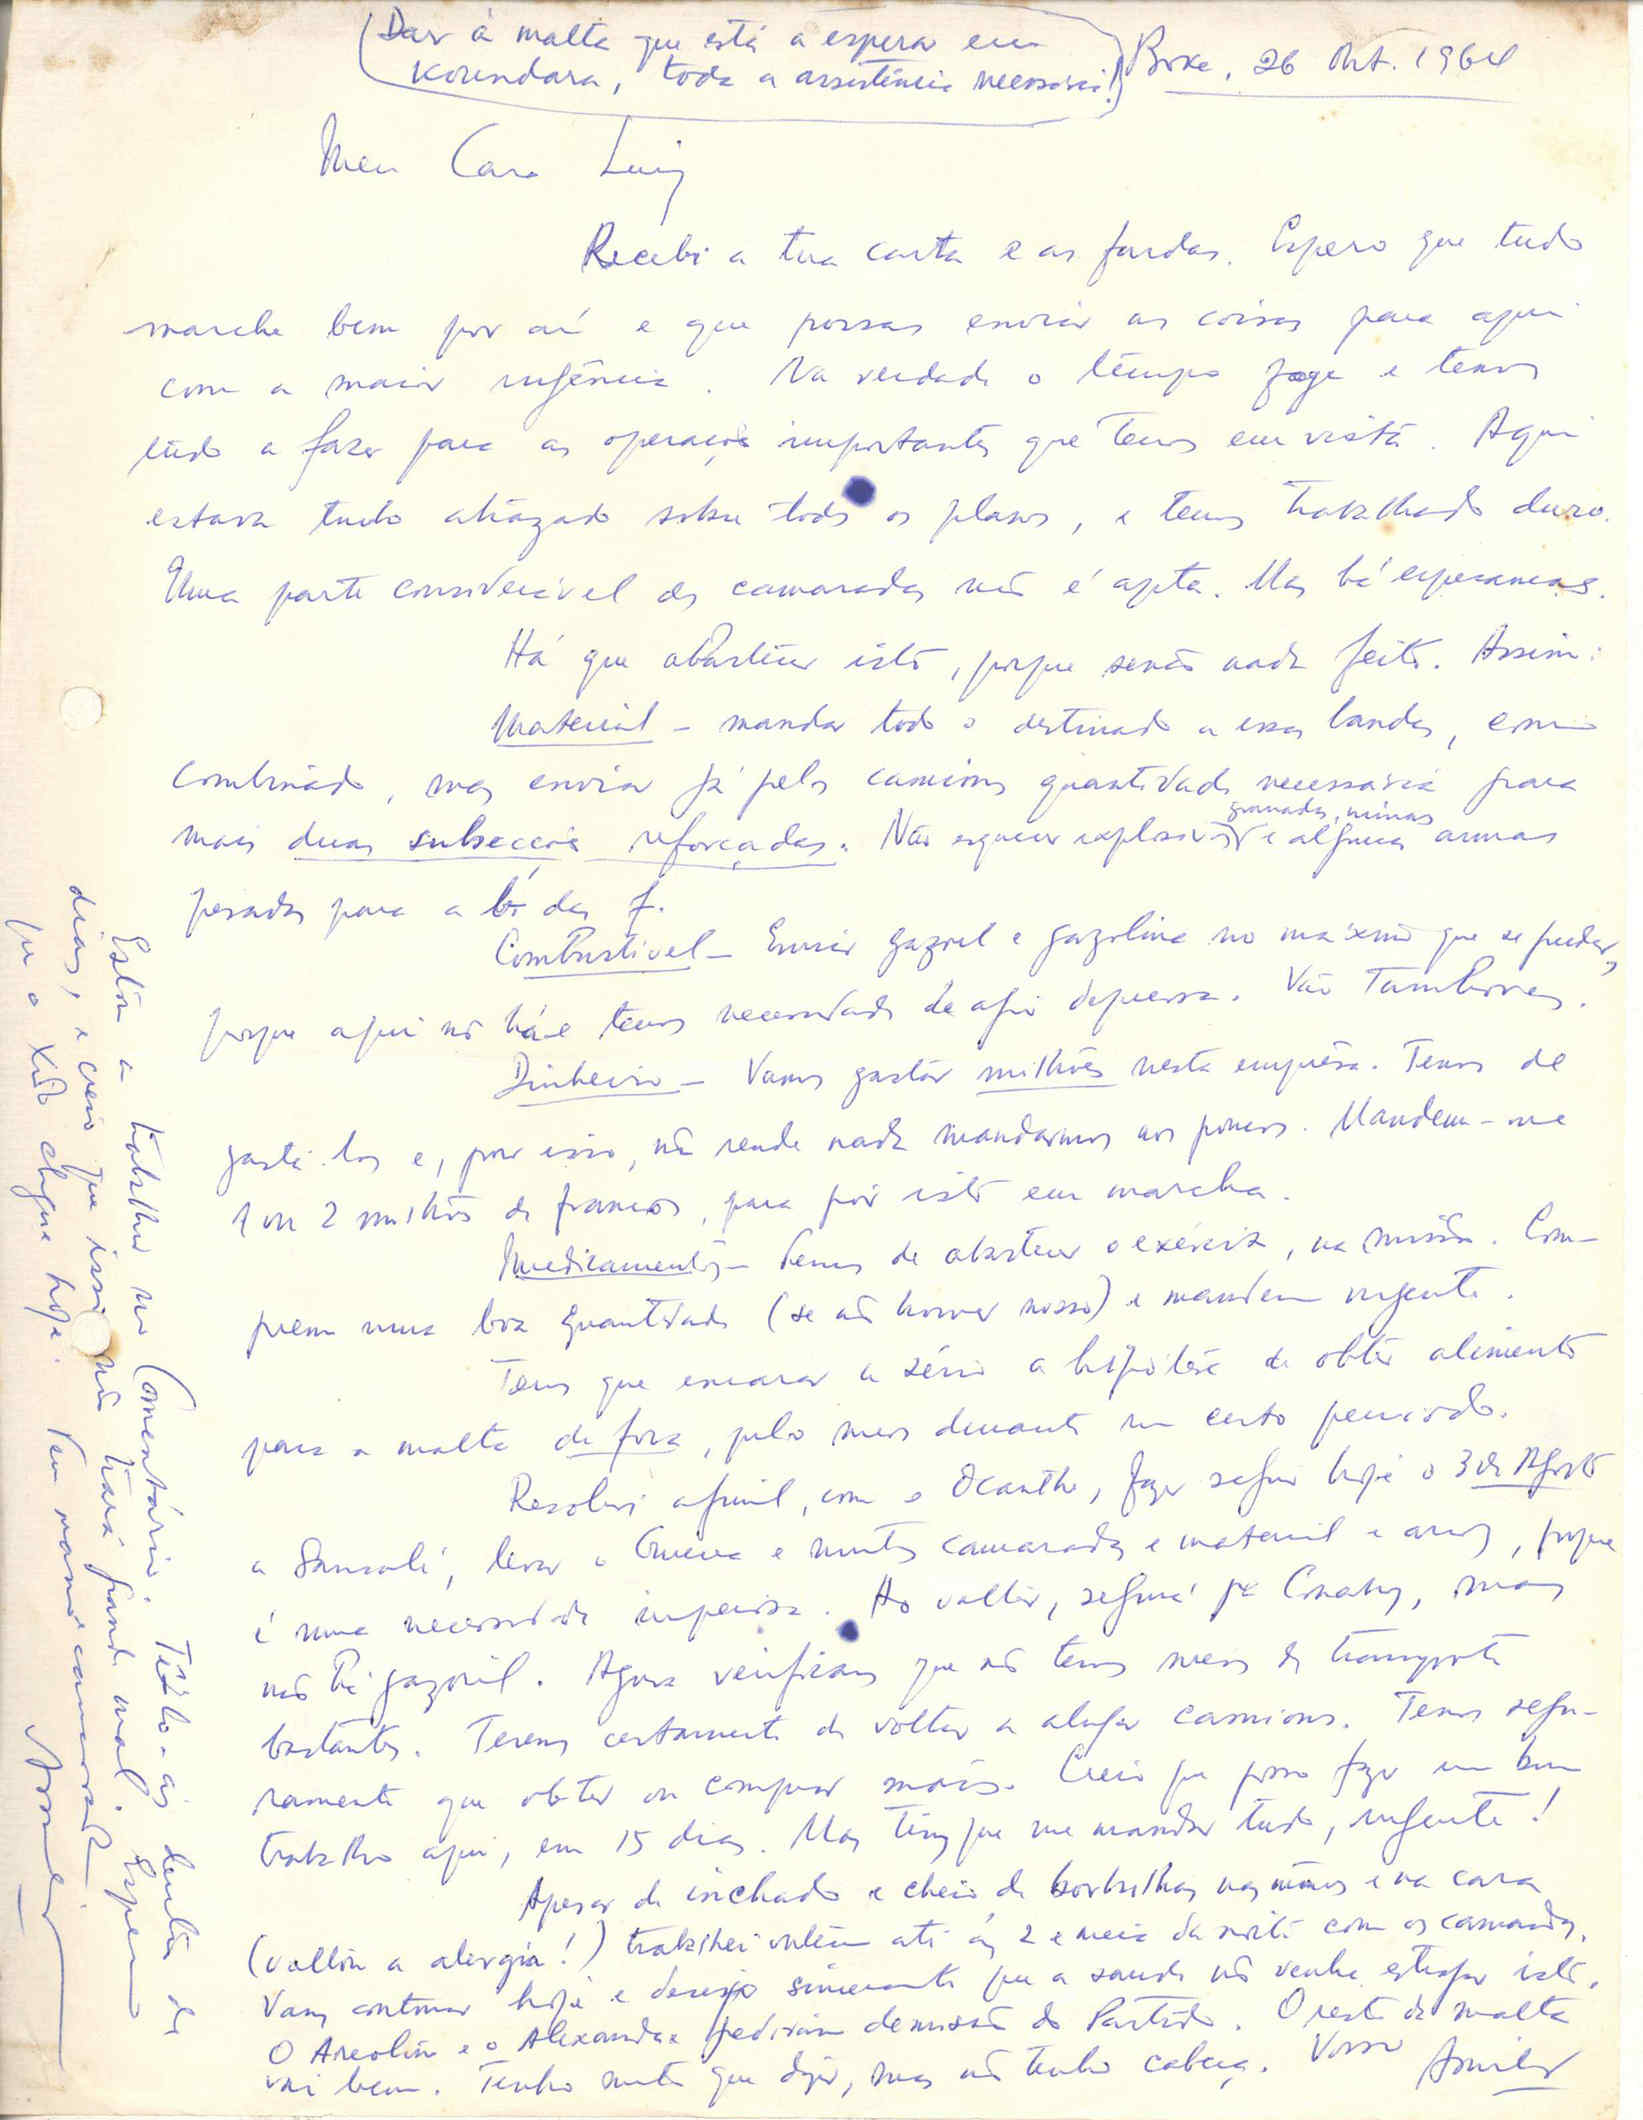 (Dar à malta que está à espera em
Koundara, toda a assistência necessária!)
Boke, 26 Out. 1964
Meu Caro Luiz
Recebi a tua carta e as fardas. Espero que tudo
marche bem por aí e que possas enviar as coisas para aqui
com a maior urgência. Na verdade o tempo foge e temos
tudo a fazer para as operações importantes que temos em vista. Aqui
estava tudo atrazado sobre todos os planos, e temos trabalhado duro.
Uma parte considerável dos camaradas não é apta. Mas há esperanças.
Há que abastecer isto, porque senão nada feito. Assim:
Material - mandar todo o destinado a essas bandas, como
combinado, mas enviar já pelos camions quantidade necessária para
mais duas subsecções reforçadas. Não esquecer explosivos granadas, minas e algumas armas
pesadas para a b. das f.
Combustivel - Enviar gazoil e gazolina no máximo que se puder,
porque aqui não há e temos necessidade de agir depressa. Vão Tambores.
Dinheiro - Vamos gastar milhões nesta emprêsa. Temos de
gastá-los e, por isso, não rende nada mandarmos aos poucos. Mandem-me
1 ou 2 milhões de francos, para pôr isto em marcha.
Medicamentos - Temos de abastecer o exército, na missão. Com-
prem uma boa quantidade (se não houver nosso) e mandem urgente.
Temos que encarar a sério a hipótese de obter alimentos
para a malta de fora, pelo menos durante um certo periodo.
Resolvi afinal, com o Ocanthe, fazer seguir hoje o 3 de Agosto
a Sansalé, levar o Gueva e muitos camaradas e material e arroz, porque
é uma necessidade imperiosa. Ao voltar, seguirá pª Conakry, mas
não há gazoil. Agora verificamos que não temos meios de transporte
bastantes. Teremos certamente de voltar a alugar camions. Temos segu-
ramente que obter ou comprar mais. Creio que posso fazer um bom
trabalho aqui, em 15 dias. Mas têm que me mandar tudo, urgente!
Apesar de inchado e cheio de borbulhas nas mãos e na cara
(voltou a alergia!) trabalhei ontem até às 2 e meia da noite com os camaradas.
Vamos continuar hoje e desejo sinceramente que a saude não venha estragar isto.
O Areolino e o Alexandre pediram demissão do Partido. O resto da malta
vai bem. Tenho muito que dizer, mas não tenho cabeça. Vosso Amilcar
Estou a trabalhar no Comentário. Tê-lo-ás dentro de
dias, e creio que isso não trará grande mal. Espero
que o Xido chegue hoje. Teu mano e camarada
Amilcar